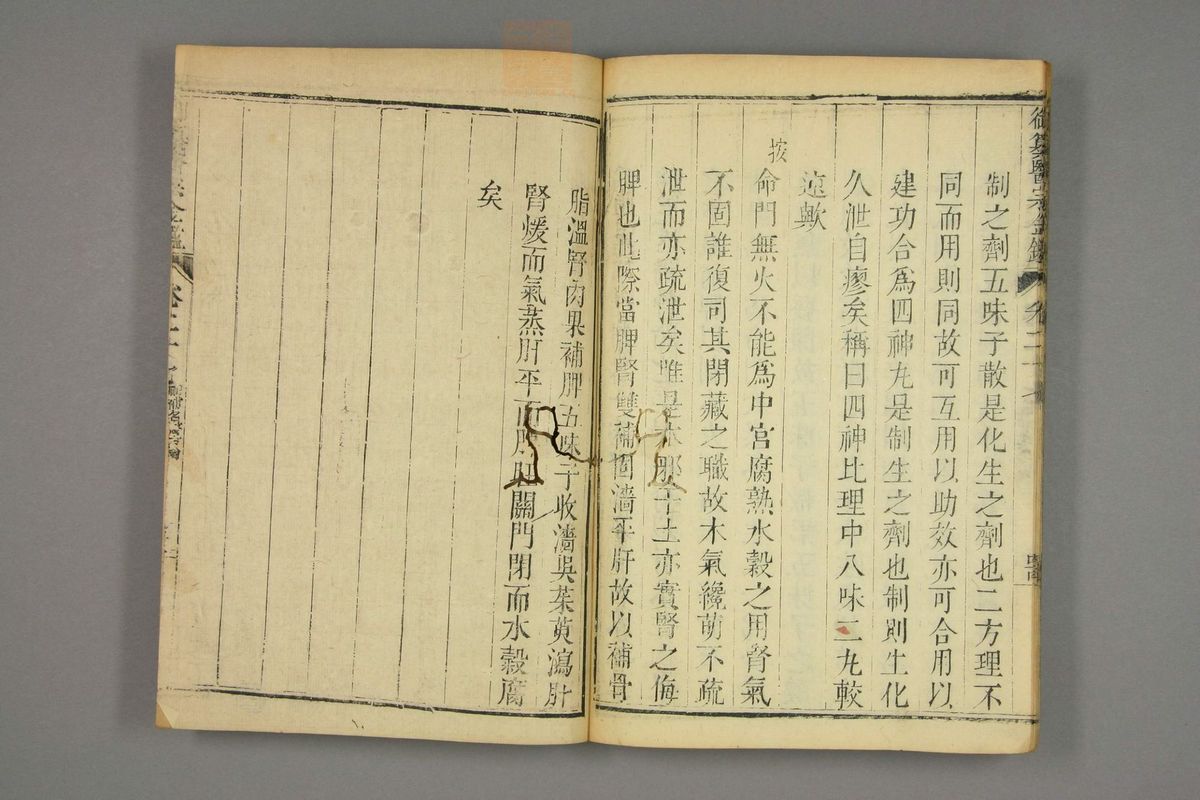 御纂醫宗金鑑
卷二十七
制之劑五味子散是化生之劑也二方理不
同而用則同故可互用以助效亦可合用以
建功合爲四神丸是制生之劑也制則生化
久泄自瘳矣稱曰四神比理中八味二丸較
遠歟
按
命門無火不能爲中宮腐熟水穀之用腎氣
不固誰復司其閉藏之職故木氣纔萌不疏
泄而亦疏泄矣雖是木邪干土亦實腎之侮
脾也此際當脾腎雙補固濇平肝故以補骨
脂溫腎肉果補脾五味子收濇吳茱萸瀉肝
腎煖而氣蒸肝平而脾旺關門閉而水穀腐
矣